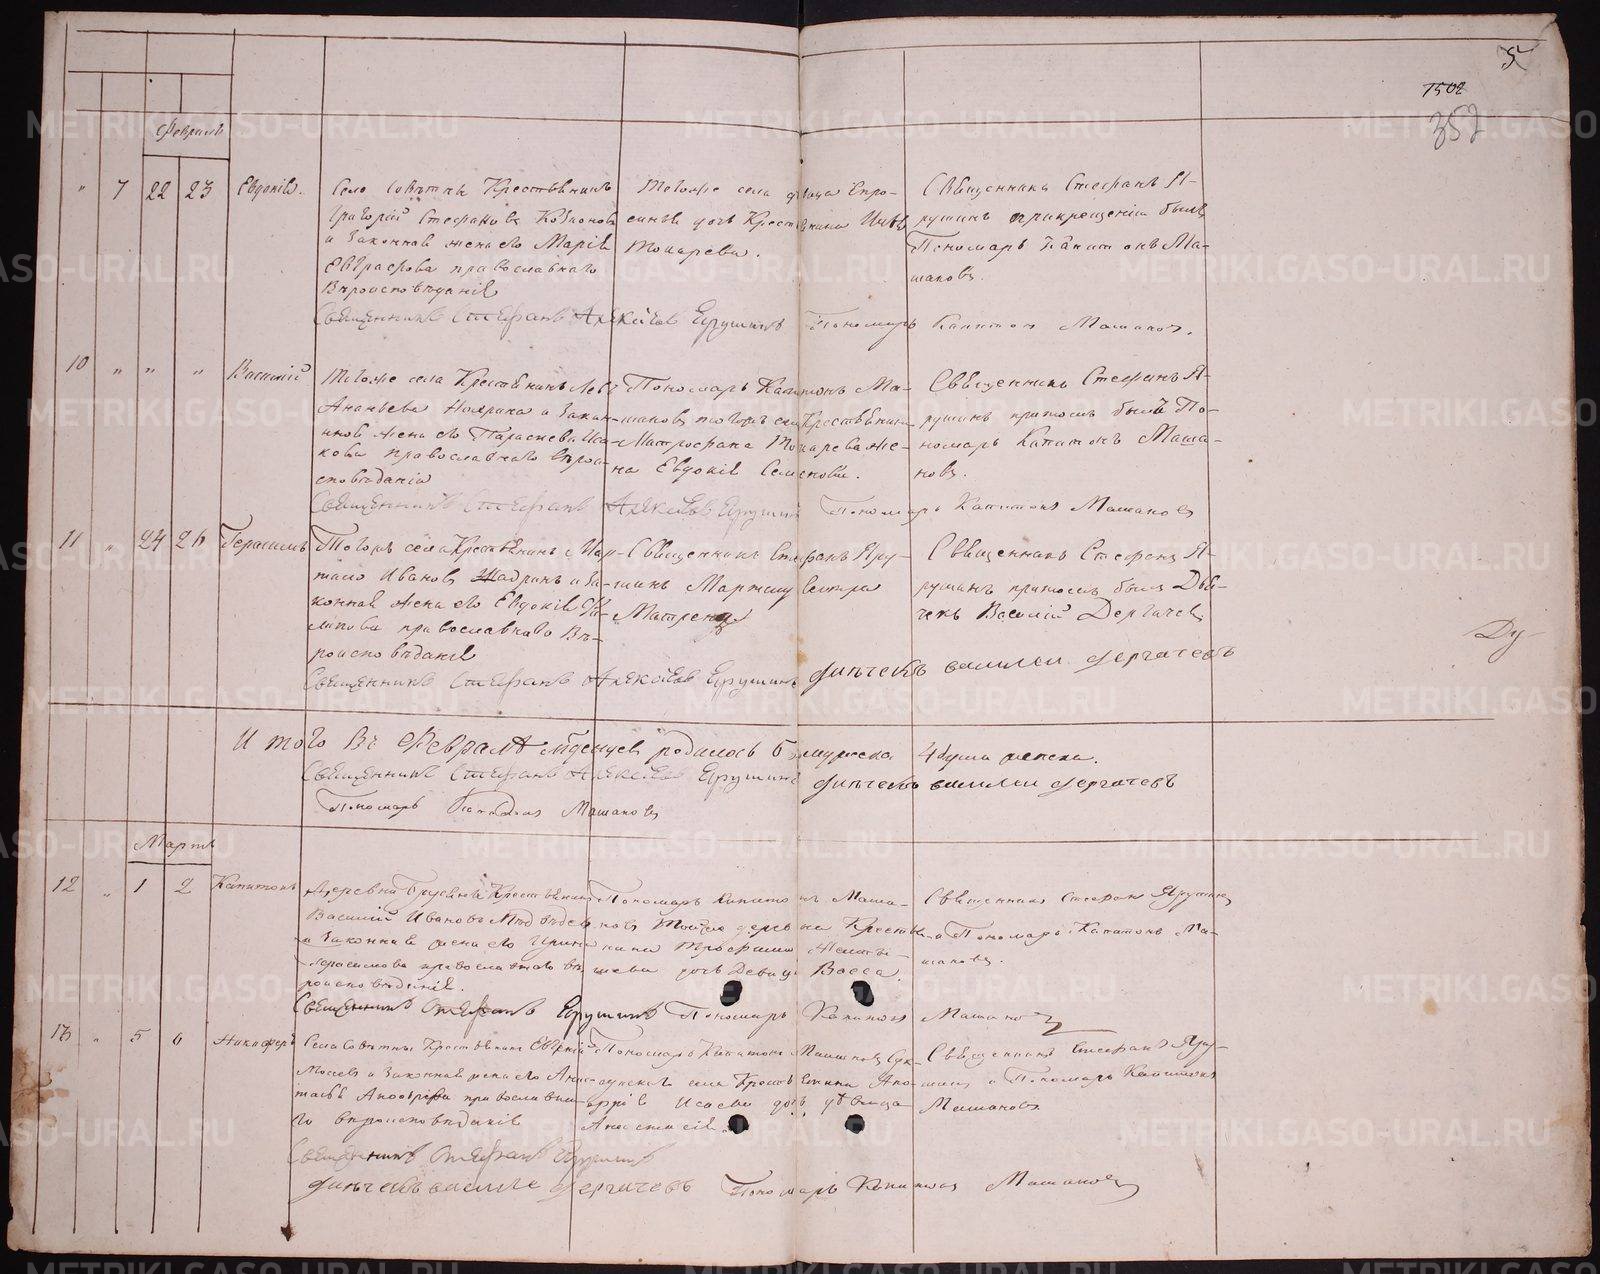 5
1502
352
Февраль
" 7 22 23 Евдокія.
Село Совѣтны Крестьянинъ
Григорій Стефановъ
и законная жена его Марія
Евграфова православнаго
Вѣроисповѣданія
Тогоже села дѣвица Евро-
синья дочь Крестьянина
Токарева.
Священникъ Стефанъ Я-
рушинъ прикрещеніи былъ
Пономарь Капитонъ Ма-
шановъ.
Священникъ Стефанъ Алексѣевъ Ерушинъ Пономарь Капитонъ Машановъ.
10 " " " Василій
Тогоже села Крестьянинъ Левъ
Ананьевъ и закон-
ная жена его Параскева Иса-
кова православнаго вѣрои-
сповѣданія
Пономарь Капитонъ Ма-
шановъ тогожъ села Крестьянина
Митрофана Токарева же-
на Евдокія Семенова.
Священникъ Стефанъ Я-
рушинъ притомъ былъ По-
номарь Капитонъ Маша-
новъ.
Священникъ Стефанъ Алексѣевъ Ерушинъ Пономарь Капитонъ Машановъ
11 " 24 26 Герасимъ
Тогожъ села Крестьянинъ Мар-
тинъ Ивановъ Шадринъ и за-
конная жена его Евдокія
православнаго Вѣ-
роисповѣданія
Священникъ Стефанъ Яру-
шинъ
Матрена
Священникъ Стефанъ Я-
рушинъ притомъ былъ Дья-
чекъ Василій Дергачевъ
Священникъ Стефанъ Алексѣевъ Ерушинъ дьячекъ василеи дергачевъ
Ду-
Итого Въ Февралѣ мѣсяцѣ родилось 6 мужеска 4 душа женска.
Священникъ Стефанъ Алексѣевъ Ерушинъ дьячекъ василеи дергачевъ
Пономарь Капитонъ Машановъ
Мартъ
12 " 1 2 Капитонъ
Деревни Брусяной Крестьянинъ
Василій Ивановъ Медвѣдев
и законная жена его Ирина
Герасимова православнаго вѣ
роисповѣданія.
Пономарь Капитонъ Маша-
новъ Тойже деревни Кресть-
янина Трофима
дочь Девица Васса.
Священникъ Стефанъ Ярушинъ
и Пономарь Капитонъ Ма-
шановъ.
Священникъ Стефанъ Ерушинъ Пономарь Капитонъ Машановъ
13 " 5 6 Никифоръ
Села Совѣтны Крестьянинъ Евгеній
Мосеев и законная жена его Анис-
православна-
го вѣроисповѣданія
Пономарь Капитонъ Машановъ
села Крестьянина
Исаева дочь дѣвица
Анастасія.
Священникъ Стефанъ Яру-
шинъ и Пономарь Капитонъ
Машановъ
Священникъ Стефанъ Ерушинъ
дьячекъ василеи дергачевъ Пономарь Капитонъ Машановъ
METRIKI.GASO-URAL.RU